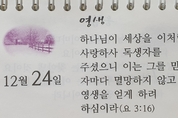 영생
하나님이 세상을 이처
사랑하사 독생자를
주셨으니 이는 그를 믿
자마다 멸망하지 않고
영생을 얻게 하려
하심이라(요 3:16)
12월 24일